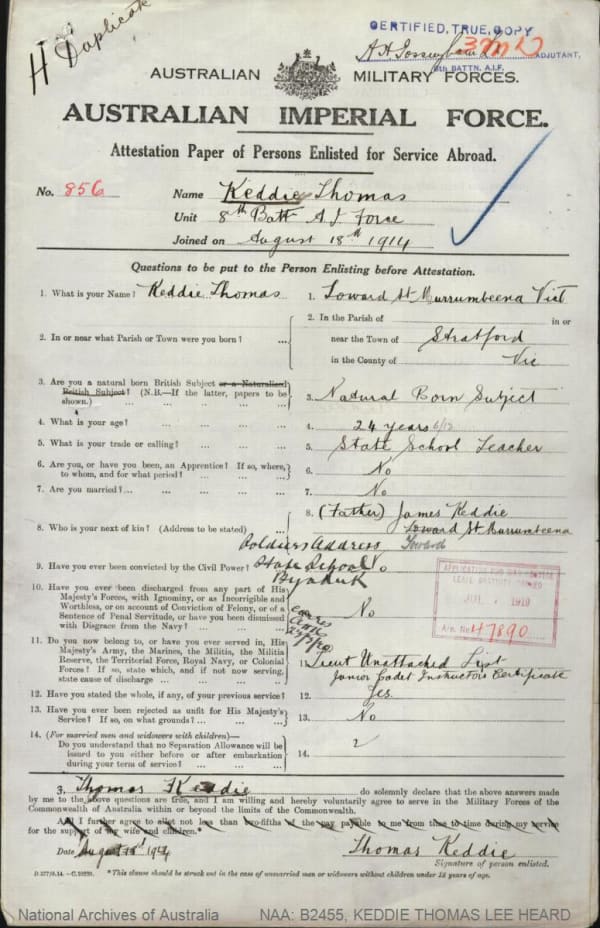 H Duplicate
CERTIFIED TRUE COPY
ADJUTANT,
8th BATTN. A.I.F.
AUSTRALIAN MILITARY FORCES.
AUSTRALIAN IMPERIAL FORCE.
Attestation Paper of Persons Enlisted for Service Abroad.
No. 856 Name Keddie Thomas
Unit 8th Batt A I Force
Joined on August 18th 1914
Questions to be put to the Person Enlisting before Attestation.
1. What is your Name? Keddie Thomas 1. Toward St Murrumbeena Vict
2. In or near what Parish or Town were you born? ... 2. In the Parish of in or
near the Town of Stratford
in the County of Vic
3. Are you a natural born British Subject or a Naturalized
British Subject? (N.B.—If the latter, papers to be
shown.) ... 3. Natural Born Subject
4. What is your age? ... 4. 24 years 6/12
5. What is your trade or calling? ... 5. State School Teacher
6. Are you, or have you been, an Apprentice? If so, where,
to whom, and for what period? ... 6. No
7. Are you married? ... 7. No
8. Who is your next of kin? (Address to be stated) ... 8. (Father) James Keddie
Toward St Murrumbeena
Toward
Soldiers Address
State School
Byaduk
9. Have you ever been convicted by the Civil Power? No
10. Have you ever been discharged from any part of His
Majesty's Forces, with Ignominy, or as Incorrigible and
Worthless, or on account of Conviction of Felony, or of a
Sentence of Penal Servitude, or have you been dismissed
with Disgrace from the Navy? ... No
APPLICATION FOR WAR GRATUITY
JUL 1919
A/c. No. 47890
11. Do you now belong to, or have you ever served in, His
Majesty's Army, the Marines, the Militia, the Militia
Reserve, the Territorial Force, Royal Navy, or Colonial
Forces? If so, state which, and if not now serving,
state cause of discharge ... 11. Lieut Unattached List
Junior Cadet Instructors Certificate
12. Have you stated the whole, if any, of your previous service? 12. Yes
13. Have you ever been rejected as unfit for His Majesty's
Service? If so, on what grounds? ... 13. No
14. (For married men and widowers with children)—
Do you understand that no Separation Allowance will be
issued to you either before or after embarkation
during your term of service? ... 14.
3. Thomas Keddie do solemnly declare that the above answers made
by me to the above questions are true, and I am willing and hereby voluntarily agree to serve in the Military Forces of the
Commonwealth of Australia within or beyond the limits of the Commonwealth.
And I further agree to allot not less than two-fifths of the pay payable to me from time to time during my service
for the support of my wife and children.*
Date August 18th 1914 Thomas Keddie
Signature of person enlisted.
*This clause should be struck out in the case of unmarried men or widowers without children under 18 years of age.
National Archives of Australia NAA: B2455, KEDDIE THOMAS LEE HEARD